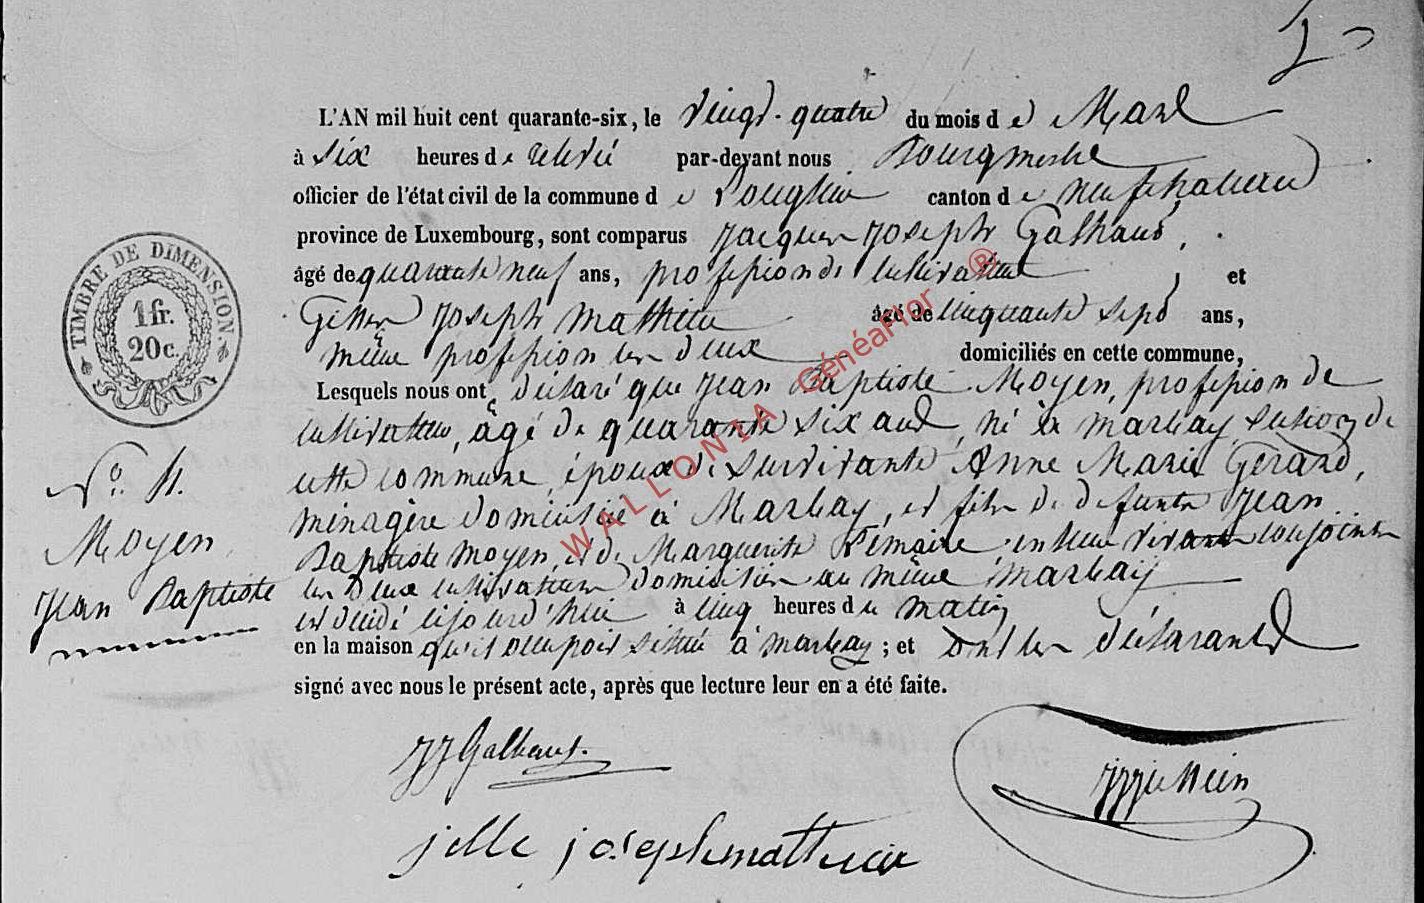 L'AN mil huit cent quarante-six, le vingt-quatre du mois de Mars
à six heures de relevée par-devant nous Bourgmestre
officier de l'état civil de la commune de canton de neufchateau
province de Luxembourg, sont comparus Jacques Joseph Galhaut,
âgé de quarante neuf ans, profession de cultivateur, et
Joseph Mathieu âgé de cinquante sept ans,
même profession les deux domiciliés en cette commune,
Lesquels nous ont déclaré que Jean Baptiste Moyen, profession de
cultivateur, âgé de quarante six ans, né à Marbay section de
cette commune, époux de survivante Anne Marie Gerard,
ménagère domiciliée à Marbay, et fils de defunts Jean
Baptiste Moyen, et de Marguerite Lemaire en leur vivant conjoints
les deux cultivateurs domiciliés au même Marbay
est décédé cejourd'hui à cinq heures du matin
en la maison qu'il occupoit située à Marbay ; et ont les déclarants
signé avec nous le présent acte, après que lecture leur en a été faite.
TIMBRE DE DIMENSION.
1 fr.
20 c.
N°. 4.
Moyen
Jean Baptiste
JJ Galhaut.
joseph mathieu
WALLONIA Généaflor ®